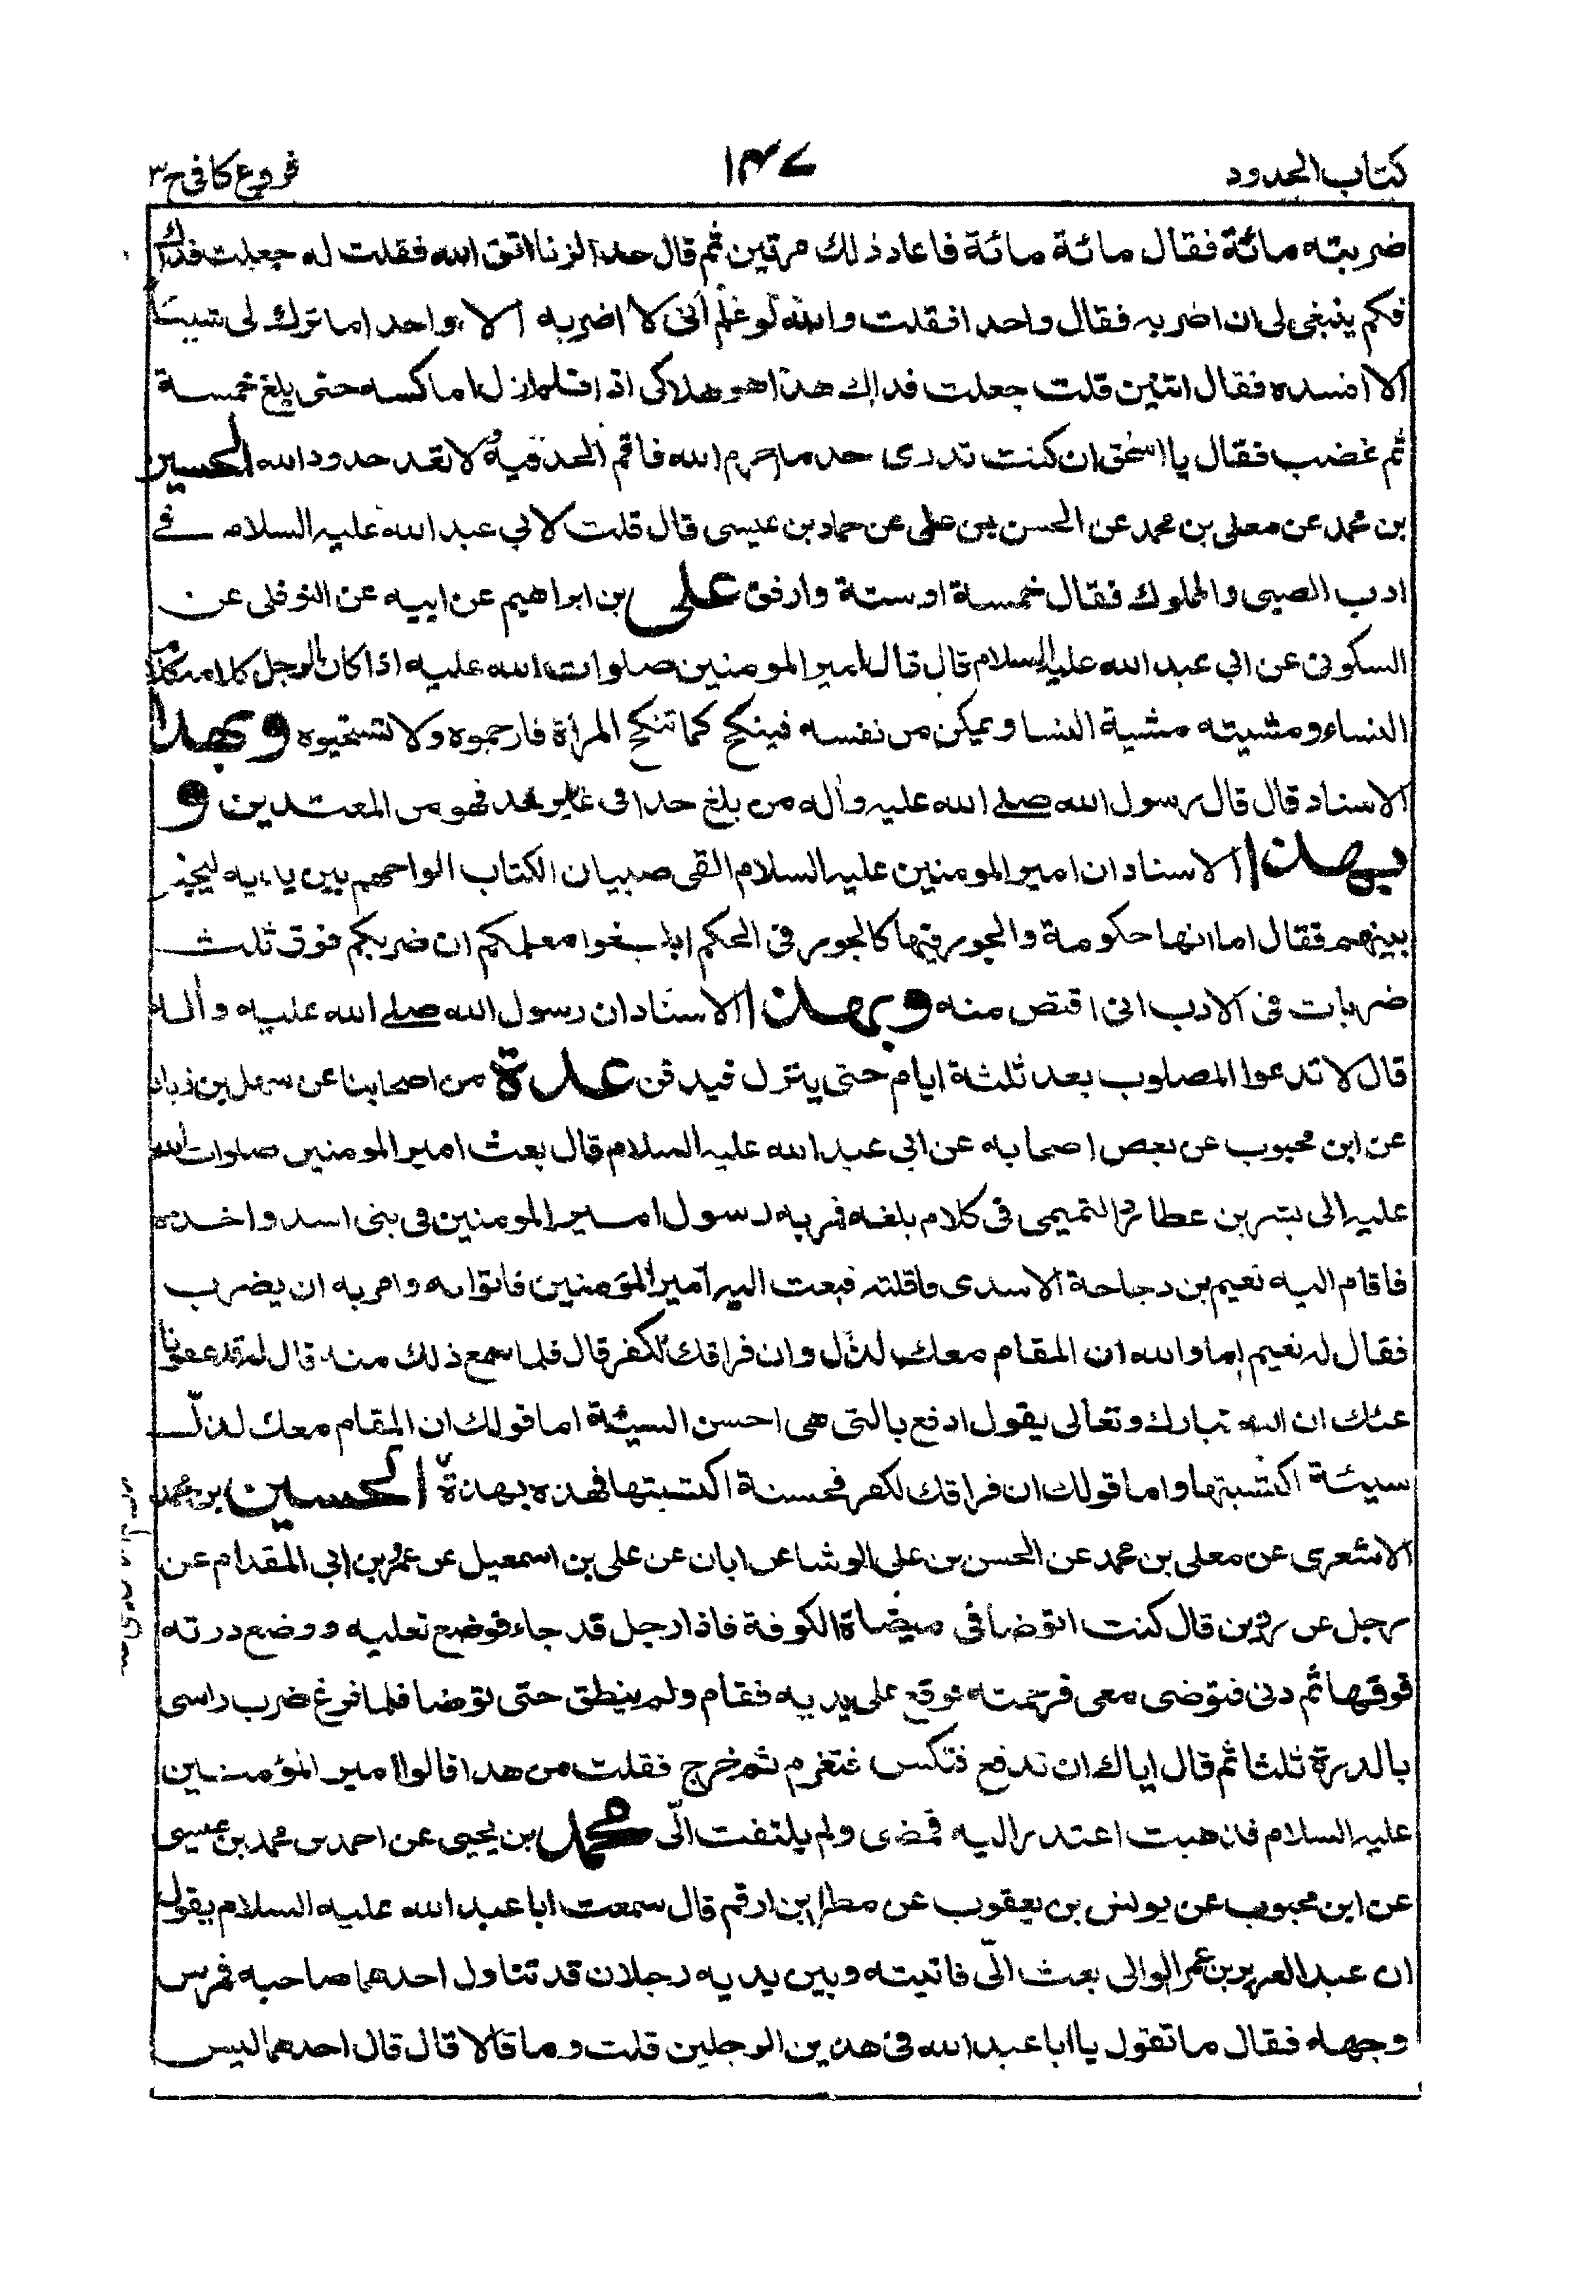 كتاب الحدود ١٤٧ فروع كافى ج٣
ضربته مائة فقال مائة مائة فاعاد ذلك مرتين ثم قال حد الزنا اتق الله فقلت له جعلت فداك
فكم ينبغى لى ان اضربه فقال واحدا فقلت والله لو علم انى لا اضربه الا واحدا ما ترك لى شيئا
الا افسده فقال اثنين قلت جعلت فداك هذا هو هلاكى اذا فلم ازل اماكسه حتى بلغ خمسة
ثم غضب فقال يا اسحق ان كنت تدرى حد ما اجرم الله فاقم الحد فيه ولا تعد حدود الله الحسين
بن محمد عن معلى بن محمد عن الحسن بن على عن حماد بن عيسى قال قلت لابي عبد الله عليه السلام في
ادب الصبى والمملوك فقال خمسة او ستة وارفق على بن ابراهيم عن ابيه عن النوفلى عن
السكونى عن ابي عبد الله عليه السلام قال قال امير المومنين صلوات الله عليه اذا كان الرجل كلامه كلام
النساء ومشيته مشية النسا ويمكن من نفسه فينكح كما تنكح المرأة فارجموه ولا تستحيوه وبهذا
الاسناد قال قال رسول الله صلے الله عليه وأله من بلغ حدا فى غير حد فهو من المعتدين و
بهذا الاسناد ان امير المومنين عليه السلام القى صبيان الكتاب الواحهم بين يديه ليخير
بينهم فقال اما انها حكومة والجور فيها كالجور فى الحكم ابلغوا معلمكم ان ضربكم فوق ثلث
ضربات فى الادب انى اقتص منه وبهذا الاسناد ان رسول الله صلے الله عليه وأله
قال لا تدعوا المصلوب بعد ثلثة ايام حتى ينزل فيدفن عدة من اصحابنا عن سهل بن زياد
عن ابن محبوب عن بعض اصحابه عن ابي عبد الله عليه السلام قال بعث امير المومنين صلوات الله
عليه الى بشر بن عطارد التميمى فى كلام بلغه فمر به رسول امير المومنين فى بنى اسد واخذه
فاقام اليه نعيم بن دجاجة الاسدى فافلته فبعث اليه امير المؤمنين فاتوا به وامر به ان يضرب
فقال له نعيم اما والله ان المقام معك لذل وان فراقك لكفر قال فلما سمع ذلك منه قال له قد عفونا
عنك ان الله تبارك وتعالى يقول ادفع بالتى هى احسن السيئة اما قولك ان المقام معك لذلّ
سيئة اكتسبتها واما قولك ان فراقك لكفر فحسنة اكتسبتها فهذه بهذه الحسين بن محمد
الاشعرى عن معلى بن محمد عن الحسن بن على الوشا عن ابان عن على بن اسمعيل عن عمرو بن ابي المقدام عن
رجل عن رزين قال كنت اتوضأ فى ميضاة الكوفة فاذا رجل قد جاء فوضع نعليه ووضع درته
فوقها ثم دنى فتوضى معى فزحمته فوقع على يديه فقام ولم ينطق حتى توضا فلما فرغ ضرب راسى
بالدرة ثلثا ثم قال اياك ان تدفع فتكسر فتغرم ثم خرج فقلت من هذا قالوا امير المؤمنين
عليه السلام فذهبت اعتذر اليه فمضى ولم يلتفت الىّ محمد بن يحيى عن احمد بن محمد بن عيسى
عن ابن محبوب عن يونس بن يعقوب عن مطر بن ارقم قال سمعت ابا عبد الله عليه السلام يقول
ان عبد العزيز بن عمر الوالى بعث الىّ فاتيته وبين يديه رجلان قد تناول احدهما صاحبه فمرس
وجهه فقال ما تقول يا ابا عبد الله فى هذين الرجلين قلت وما قالا قال قال احدهما ليس